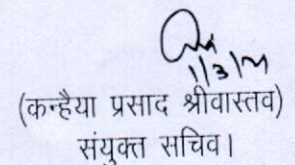 1/3/21
(कन्हैया प्रसाद श्रीवास्तव)
संयुक्त सचिव।